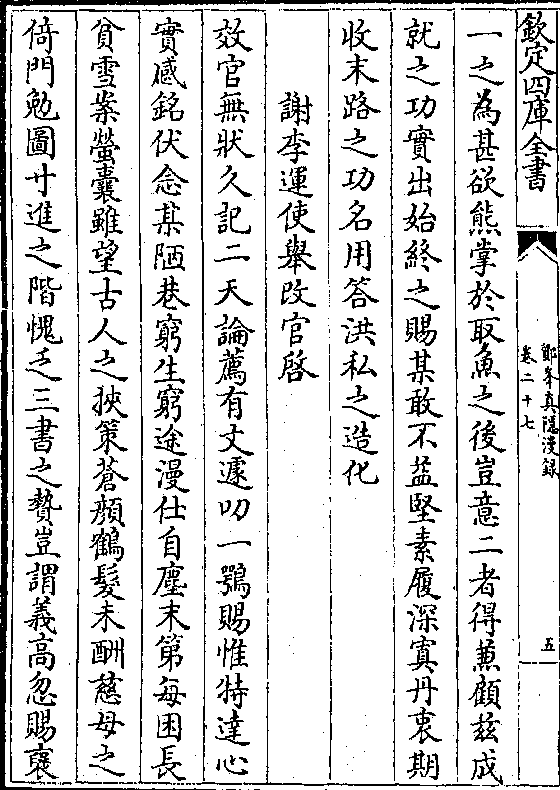 欽定四庫全書
鄮峯真隱漫録
卷二十七
五
一之為甚欲熊掌於取魚之後豈意二者得兼顧兹成
就之功實出始終之賜某敢不益堅素履深寘丹衷期
收末路之功名用答洪私之造化
謝李運使舉改官啓
效官無狀久記二天論薦有文遽叨一鶚賜惟特達心
實感銘伏念某陋巷窮生窮途漫仕自塵末第每困長
貧雪案螢囊雖望古人之挾策蒼顔鶴髮未酬慈母之
倚門勉圖寸進之階愧乏三書之贄豈謂義高忽賜襃